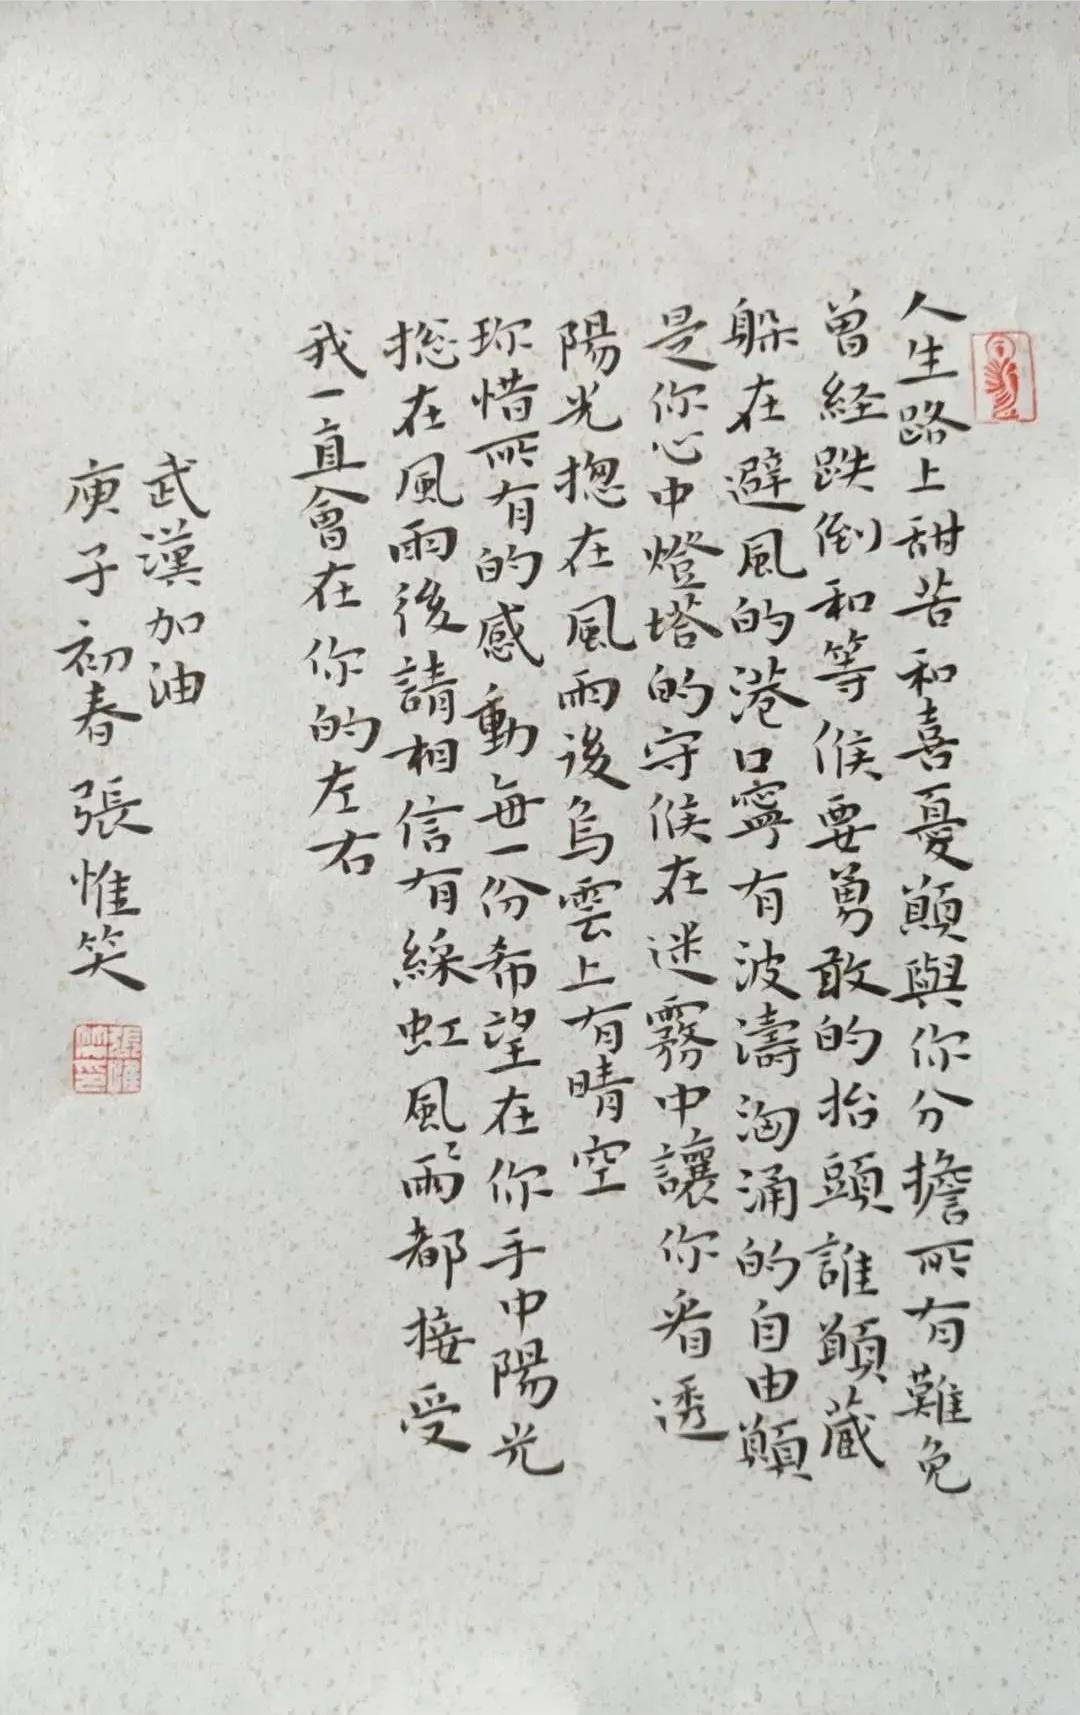 人生路上甜苦和喜憂願與你分擔所有難免
曾経跌倒和等候要勇敢的抬頭誰願藏
躲在避風的港口寧有波濤洶涌的自由願
是你心中燈塔的守候在迷霧中讓你看透
陽光總在風雨後烏雲上有晴空
珎惜所有的感動每一份希望在你手中陽光
總在風雨後請相信有綵虹風風雨雨都接受
我一直會在你的左右
武漢加油
庚子初春 張惟笑
張惟笑印